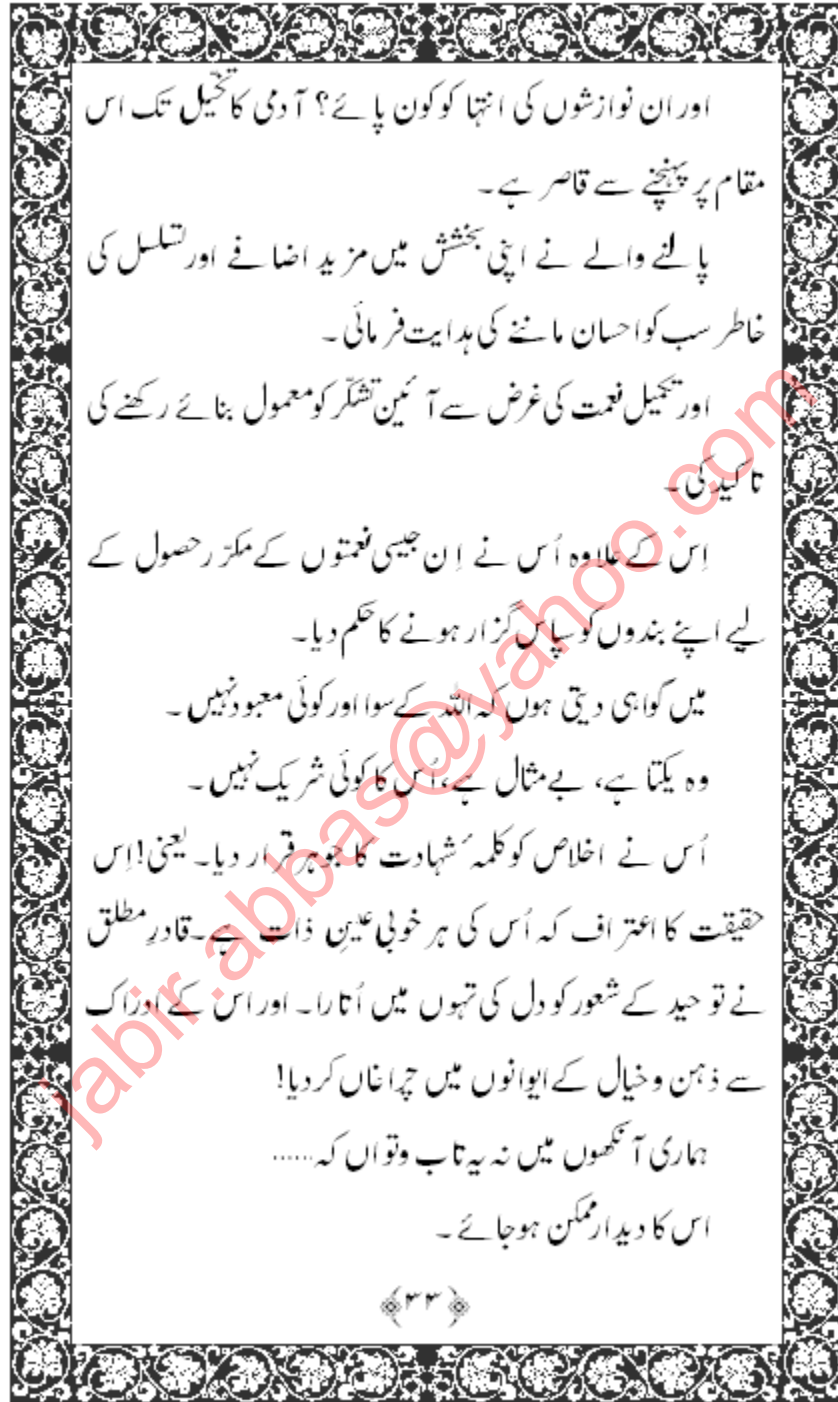 اور ان نوازشوں کی انتہا کو کون پائے؟ آدمی کا تخیّل تک اس
مقام پر پہنچنے سے قاصر ہے۔
پالنے والے نے اپنی بخشش میں مزید اضافے اور تسلسل کی
خاطر سب کو احسان ماننے کی ہدایت فرمائی۔
اور تکمیل نعمت کی غرض سے آئین تشکّر کو معمول بنائے رکھنے کی
تاکید کی۔
اِس کے علاوہ اُس نے اِن جیسی نعمتوں کے مکرّر حصول کے
لیے اپنے بندوں کو سپاس گزار ہونے کا حکم دیا۔
میں گواہی دیتی ہوں کہ اللہ کے سوا اور کوئی معبود نہیں۔
وہ یکتا ہے، بے مثال ہے، اُس کا کوئی شریک نہیں۔
اُس نے اخلاص کو کلمۂ شہادت کا جوہر قرار دیا۔ یعنی! اِس
حقیقت کا اعتراف کہ اُس کی ہر خوبی عینِ ذات ہے۔ قادرِ مطلق
نے توحید کے شعور کو دل کی تہوں میں اُتارا۔ اور اس کے ادراک
سے ذہن و خیال کے ایوانوں میں چراغاں کر دیا!
ہماری آنکھوں میں نہ یہ تاب و تواں کہ......
اس کا دیدار ممکن ہو جائے۔
﴿۳۳﴾
jabir.abbas@yahoo.com